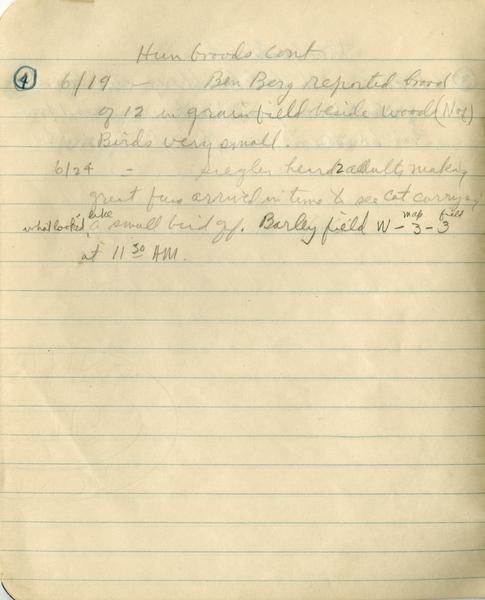 Hun broods cont
4 6/19 - Ben Berg reported brood
of 12 in grainfield beside wood (N of)
Birds very small.
6/24 - Siegler heard 2 adults making
great fuss arrived in time to see cat carrying
what looked like a small bird off. Barley field W - map 3 - field 3
at 11 30 AM.